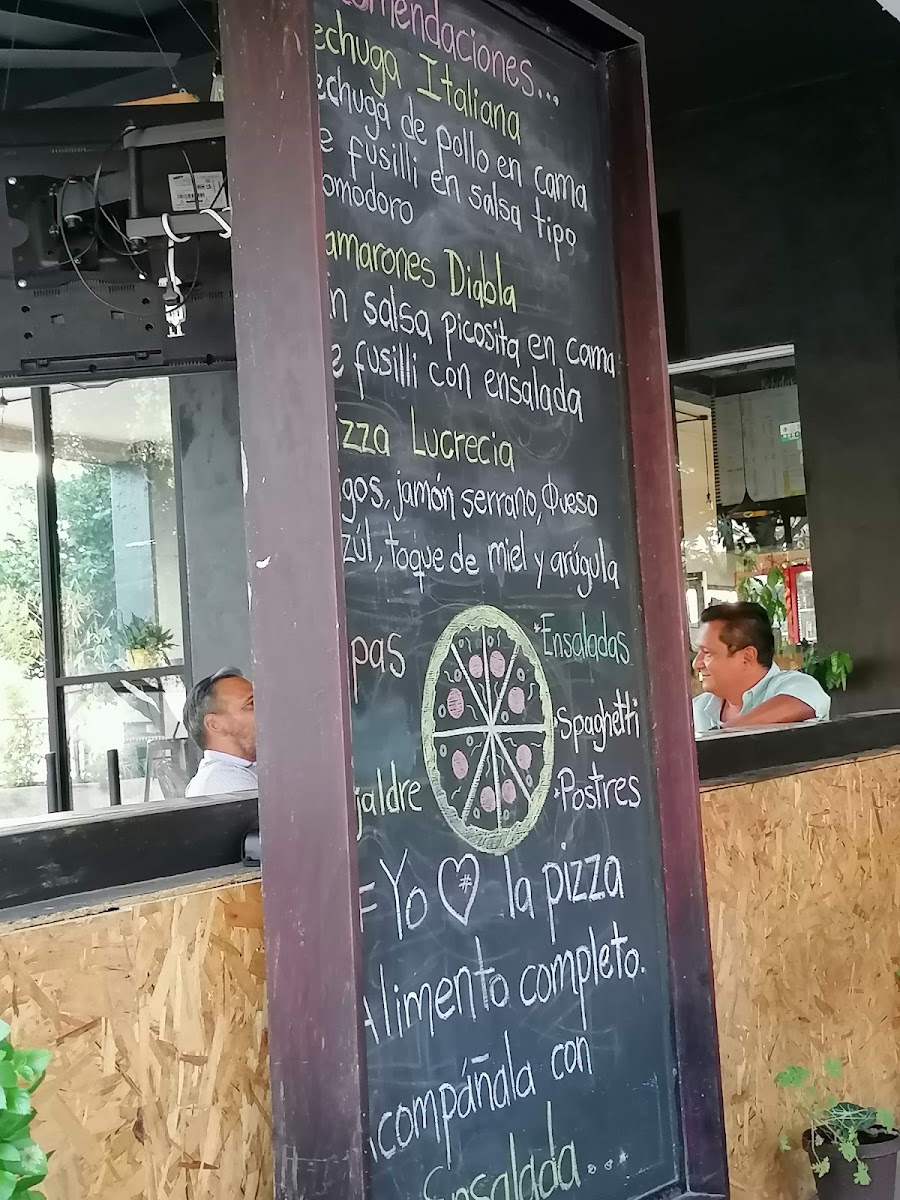 comendaciones...
echuga Italiana
echuga de pollo en cama
e fusilli en salsa tipo
omodoro
amarones Diabla
n salsa picosita en cama
e fusilli con ensalada
zza Lucrecia
gos, jamón serrano, Queso
zúl, toque de miel y arúgula
pas
*Ensaladas
*Spaghetti
jaldre
*Postres
Yo ♡ la pizza
Alimento completo.
Acompáñala con
Ensalada...